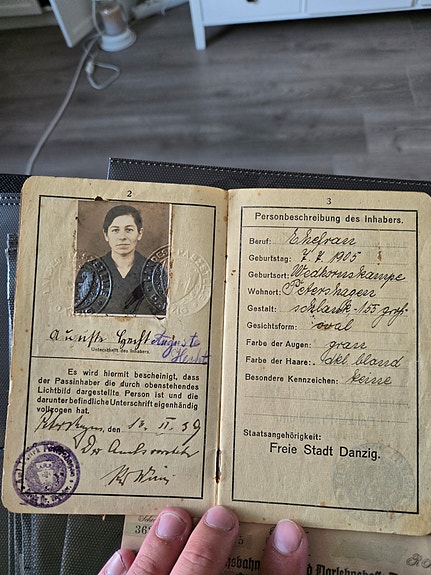 2
Auguste
Herbst
Unterschrift des Inhabers.
Es wird hiermit bescheinigt, dass
der Passinhaber die durch obenstehendes
Lichtbild dargestellte Person ist und die
darunter befindliche Unterschrift eigenhändig
vollzogen hat.
, den 13. II. 39
Der Amtsvorsteher
3
Personbeschreibung des Inhabers.
Beruf: Ehefrau
Geburtstag: 7. 7. 1905
Geburtsort:
Wohnort: Petershagen
Gestalt: schlank - 155 groß
Gesichtsform: oval
Farbe der Augen: grau
Farbe der Haare: dkl. blond
Besondere Kennzeichen: keine
Staatsangehörigkeit:
Freie Stadt Danzig.
5